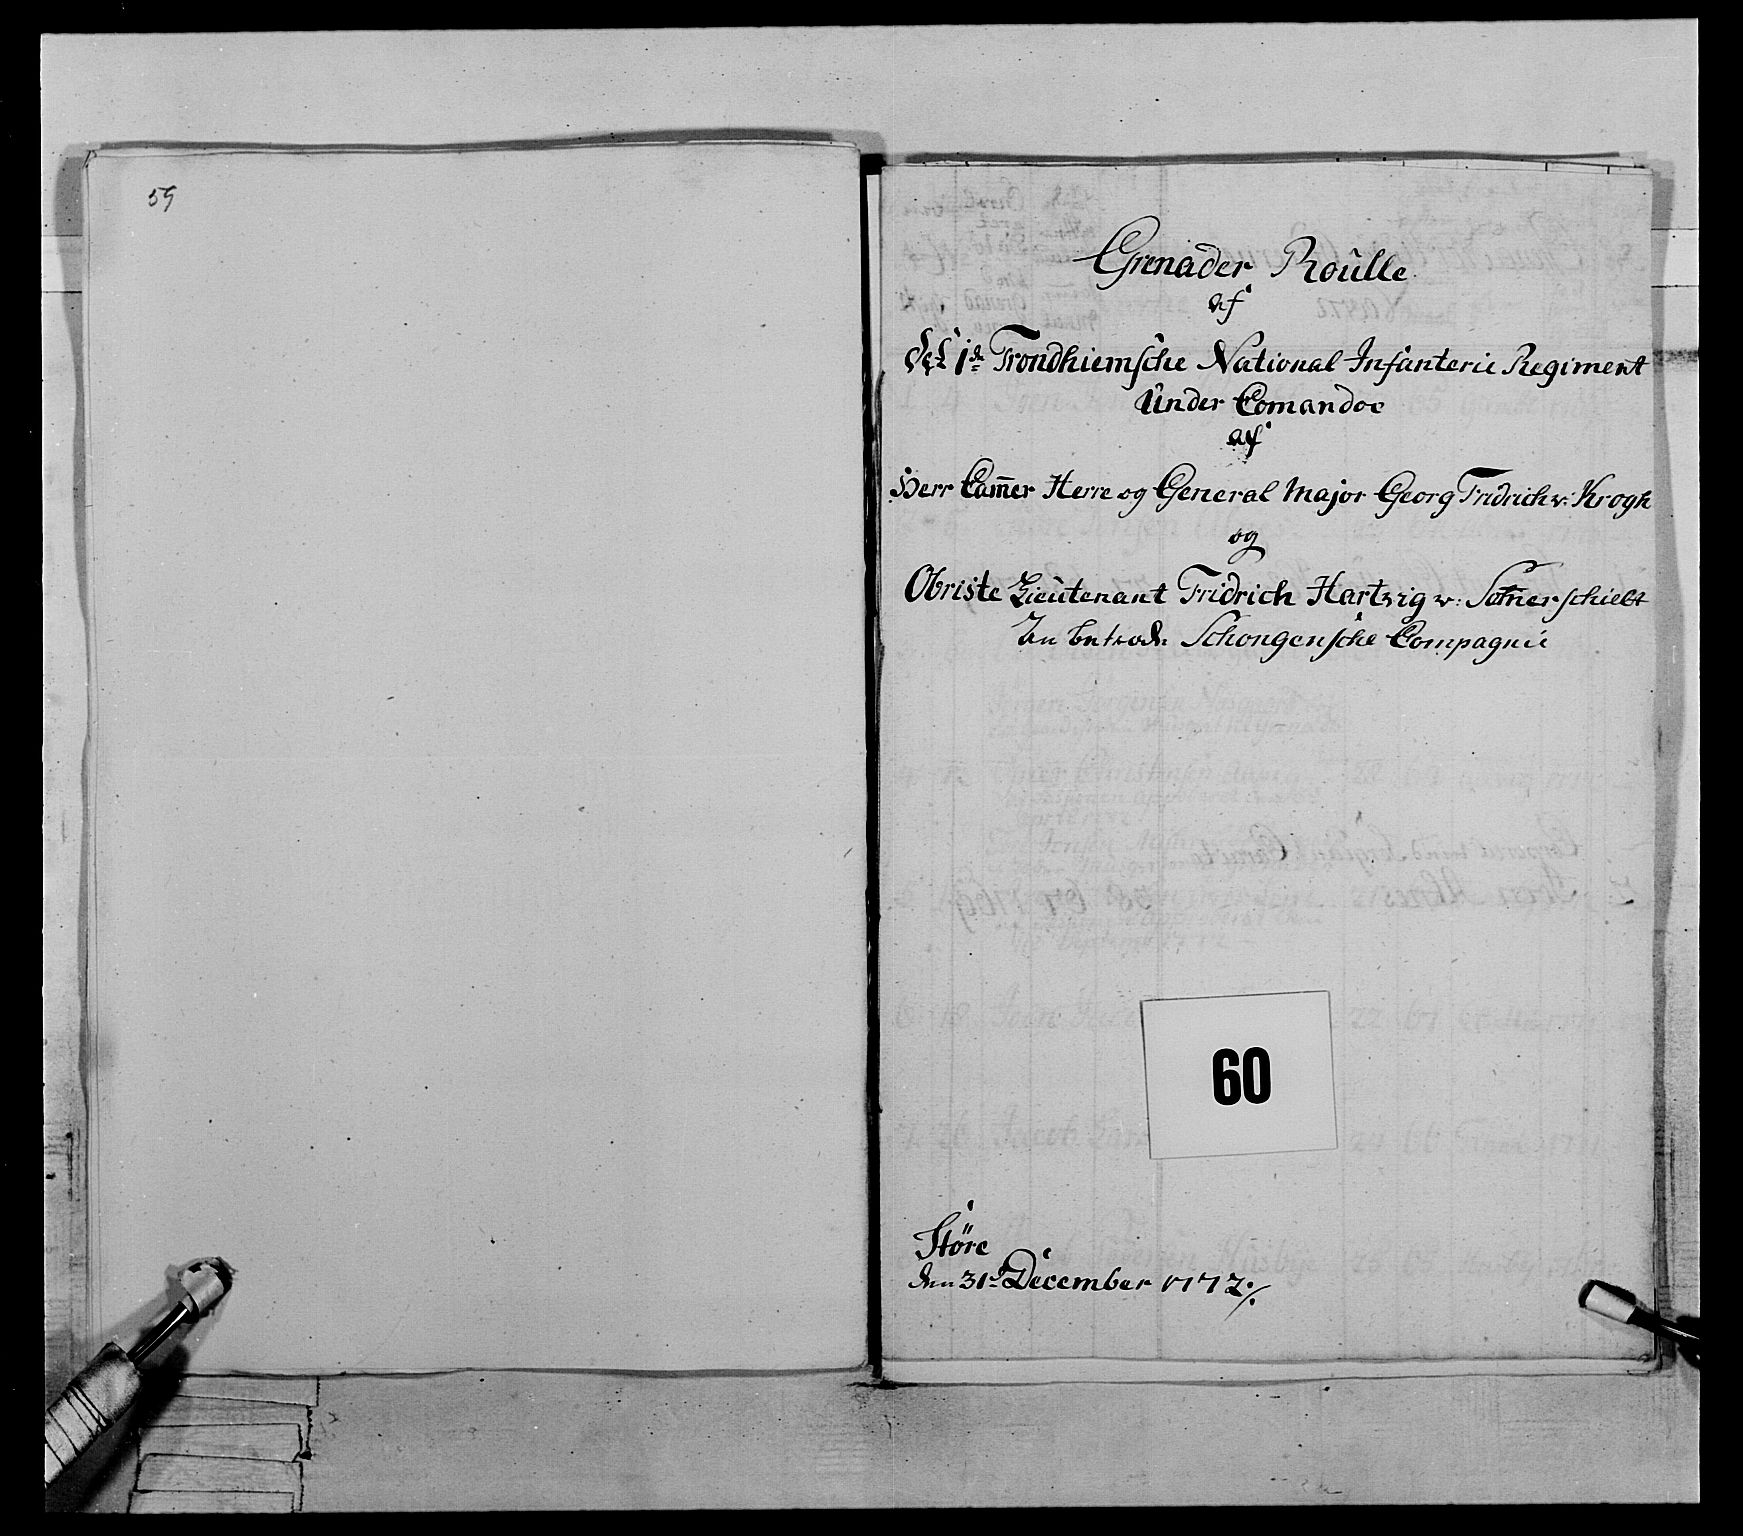 59
Grenader Roülle
af
det 1de Trondhiemsche National Infanterie Regiment
Ünder Comandoe
af
Herr Cam̄er Herre og General Major Georg Fridrich v: Krogh
og
Obriste Lieütenant Fridrich Hartvig v: Som̄erschielt
Schongensche Compagnie
60
Störe
den 31te December 1772./.